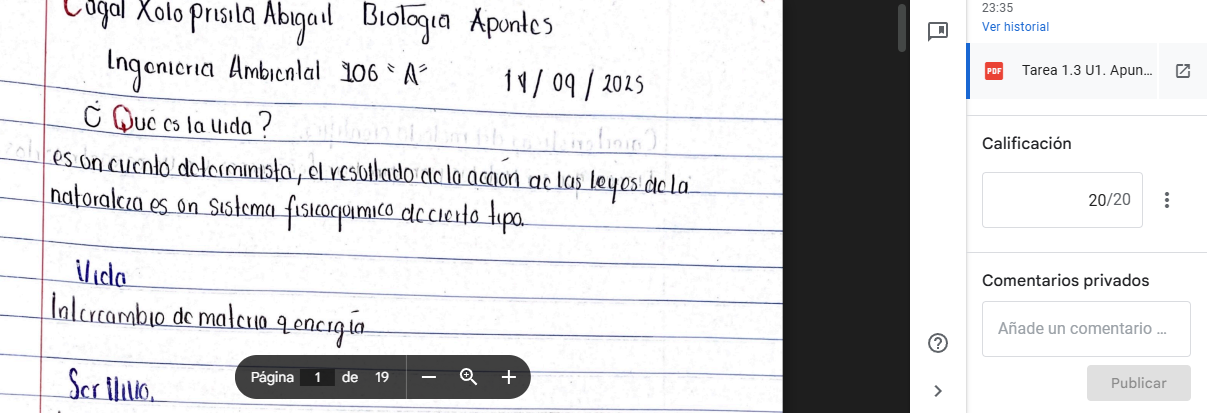 Cogal Xolo Prisila Abigail Biologia Apontes
Ingenieria Ambiental 106 "A" 19/09/2025
¿Que es la vida?
es on cuento determinista, el resoltado de la acción de las leyes de la
natoraleza es on sistema fisicoqoimico de cierto tipo.
Vida
Intercambio de materia y energía
Ser Vivo.
Página 1 de 19
23:35
Ver historial
PDF
Tarea 1.3 U1. Apun...
Calificación
20/20
Comentarios privados
Añade un comentario ...
Publicar